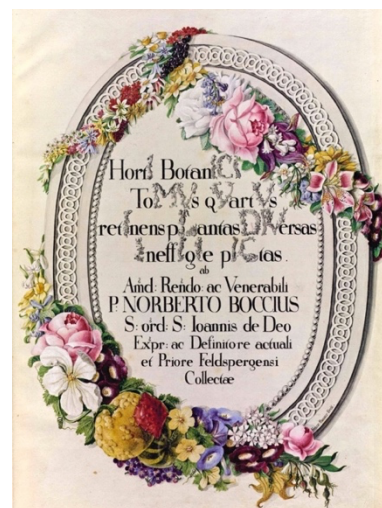 HortI BotanICI
ToMVs qVartVs
retInens pLantas DIVersas
IneffIgIe pICtas.
ab
Amd: Rendo: ac Venerabili
P. NORBERTO BOCCIUS
S: ord: S: Ioannis de Deo
Expr: ac Definitore actuali
et Priore Feldspergensi
Collectæ